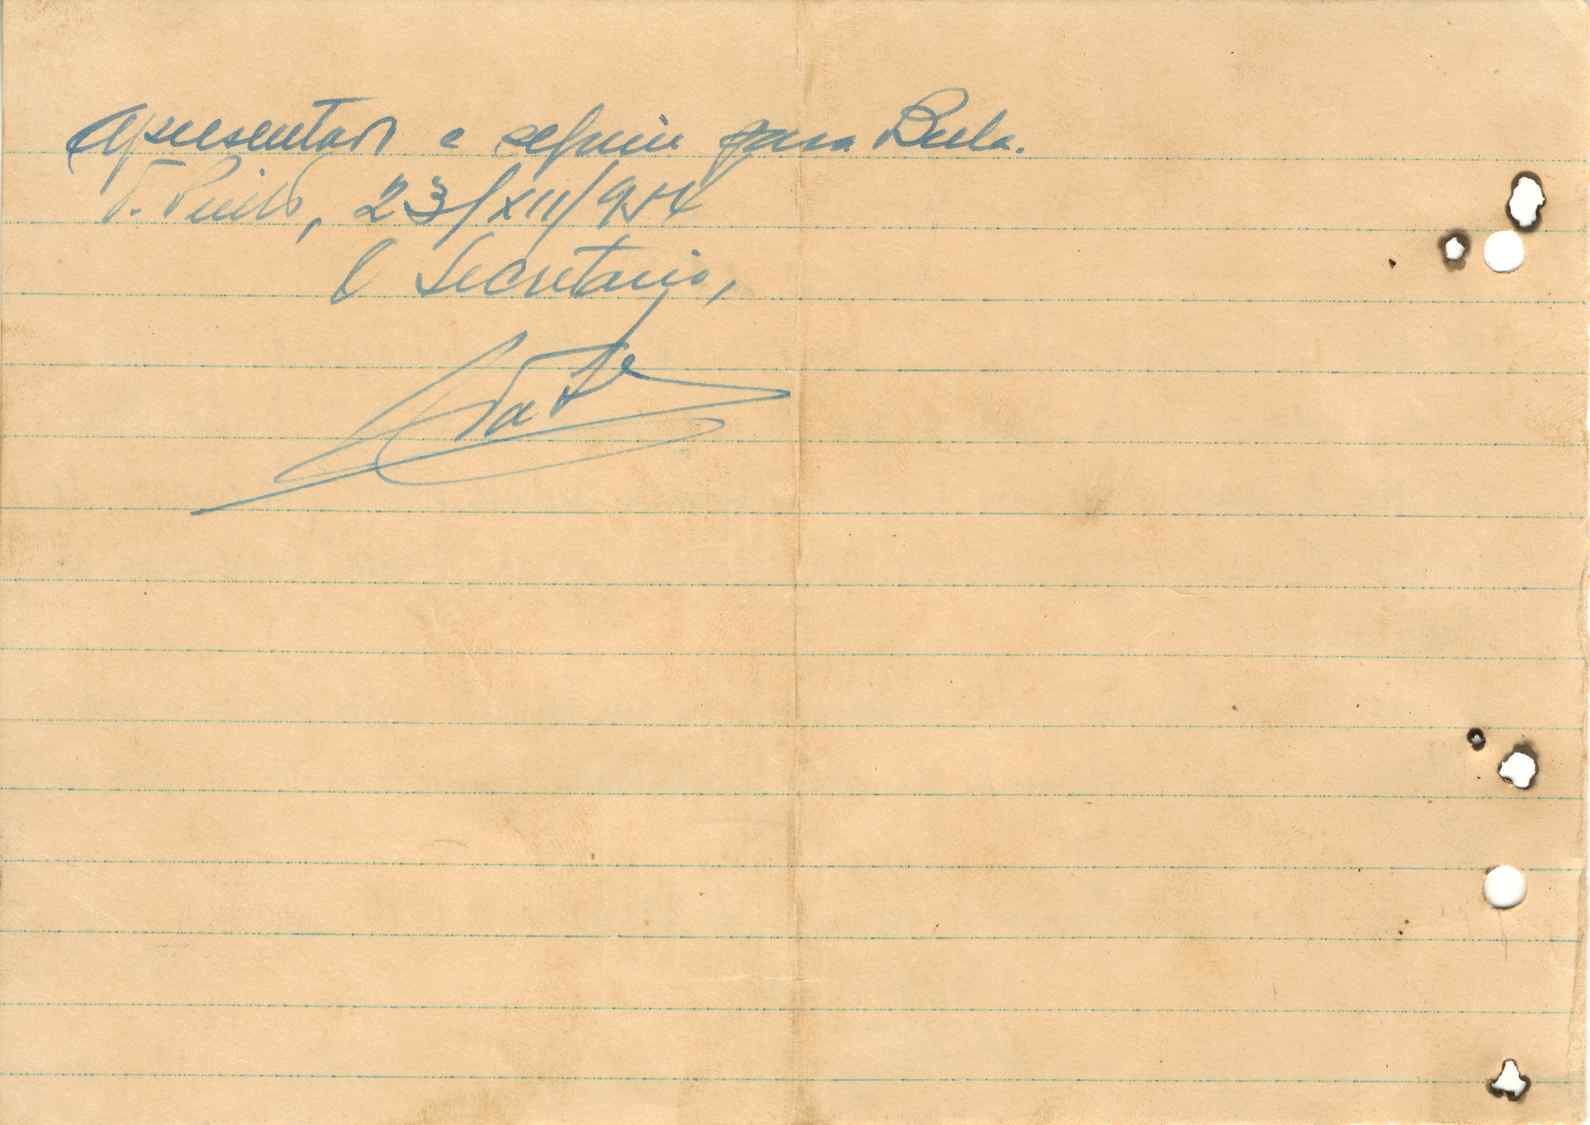 Apresentar e seguir para Bula.
T. Pinto, 23/XII/954
O Secretario,